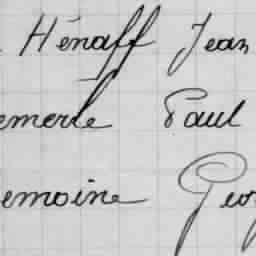 Hénaff Jean
emerle Paul
emoine Geor